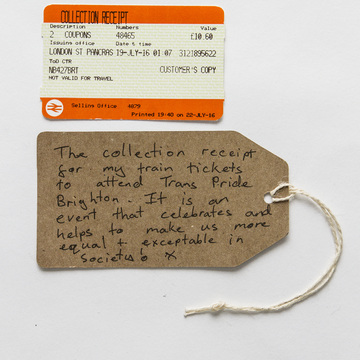 COLLECTION RECEIPT
Description Numbers Value
2 COUPONS 48465 £10.60
Issuing office Date & time
LONDON ST PANCRAS 19-JLY-16 01:07 3121895622
ToD CTR
NB427BRT CUSTOMER'S COPY
NOT VALID FOR TRAVEL
Selling Office 4079
Printed 19:40 on 22-JLY-16
The collection receipt
for my train tickets
to attend Trans Pride
Brighton. It is an
event that celebrates and
helps to make us more
equal + exceptable in